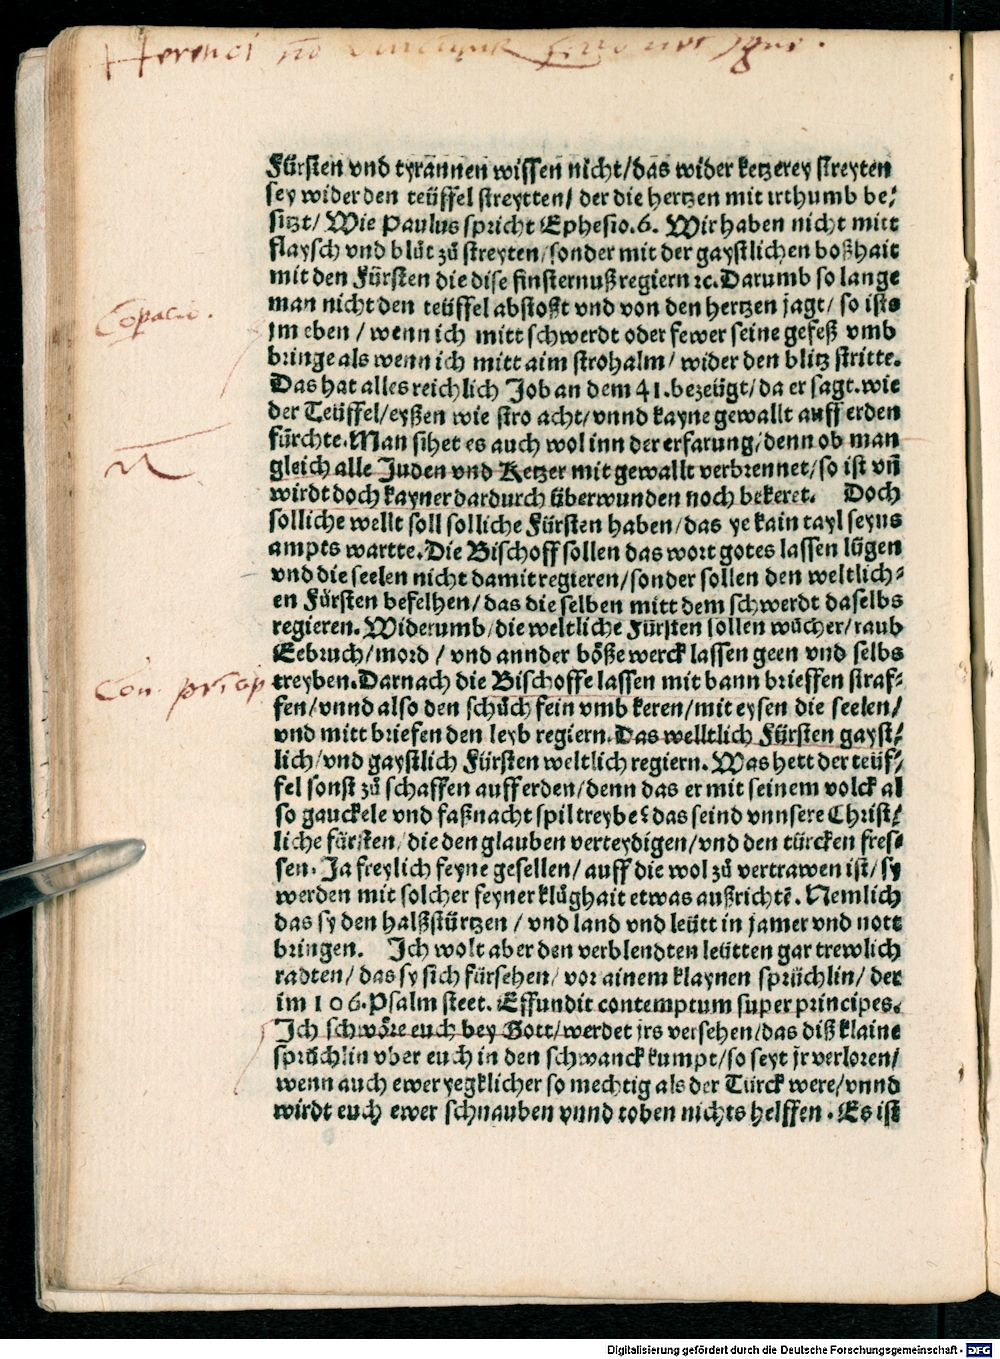 Herenci
Fürsten vnd tyrannen wissen nicht/das wider ketzerey streyten
sey wider den teüffel streytten/ der die hertzen mit irthumb be⸗
sitzt/ Wie Paulus spricht Ephesio.6. Wir haben nicht mitt
flaysch vnd blůt zů streyten/sonder mit der gaystlichen boßhait
mit den Fürsten die dise finsternuß regiern ꝛc. Darumb so lange
man nicht den teüffel abstoßt vnd von den hertzen jagt/ so ists
jm eben / wenn ich mitt schwerdt oder fewer seine gefeß vmb
bringe als wenn ich mitt aim strohalm/ wider den blitz stritte.
Das hat alles reichlich Job an dem 41. bezeügt/da er sagt. wie
der Teüffel/eyßen wie stro acht/vnnd kayne gewallt auff erden
fürchte. Man sihet es auch wol inn der erfarung/denn ob man
gleich alle Juden vnd Ketzer mit gewallt verbrennet/so ist vñ
wirdt doch kayner dardurch überwunden noch bekeret. Doch
solliche wellt soll solliche Fürsten haben/das ye kain tayl seyns
ampts wartte. Die Bischoff sollen das wort gotes lassen lügen
vnd die seelen nicht damit regieren/sonder sollen den weltlich⸗
en Fürsten befelhen/das die selben mitt dem schwerdt daselbs
regieren. Widerumb/die weltliche Fürsten sollen wůcher/raub
Eebruch/mord / vnd annder böße werck lassen geen vnd selbs
treyben. Darnach die Bischoffe lassen mit bann brieffen straf⸗
fen/vnnd also den schůch fein vmb keren/mit eysen die seelen/
vnd mitt briefen den leyb regiern. Das welltlich Fürsten gayst⸗
lich/vnd gaystlich Fürsten weltlich regiern. Was hett der teüf⸗
fel sonst zů schaffen auff erden/denn das er mit seinem volck al
so gauckele vnd faßnacht spil treybe? das seind vnnsere Christ⸗
liche fürsten/die den glauben verteydigen/vnd den türcken fres⸗
sen. Ja freylich feyne gesellen/auff die wol zů vertrawen ist/sy
werden mit solcher feyner klůghait etwas außrichtē. Nemlich
das sy den halßstürtzen / vnd land vnd leütt in jamer vnd nott
bringen. Ich wolt aber den verblendten leütten gar trewlich
radten/das sy sich fürsehen/vor ainem klaynen sprüchlin/der
im 106. Psalm steet. Effundit contemptum super principes.
Ich schwöre euch bey Gott/werdet jrs versehen/das diß klaine
sprüchlin vber euch in den schwanck kumpt/so seyt jr verloren/
wenn auch ewer yegklicher so mechtig als der Türck were/vnnd
wirdt euch ewer schnauben vnnd toben nichts helffen. Es ist
Digitalisierung gefördert durch die Deutsche Forschungsgemeinschaft - DFG